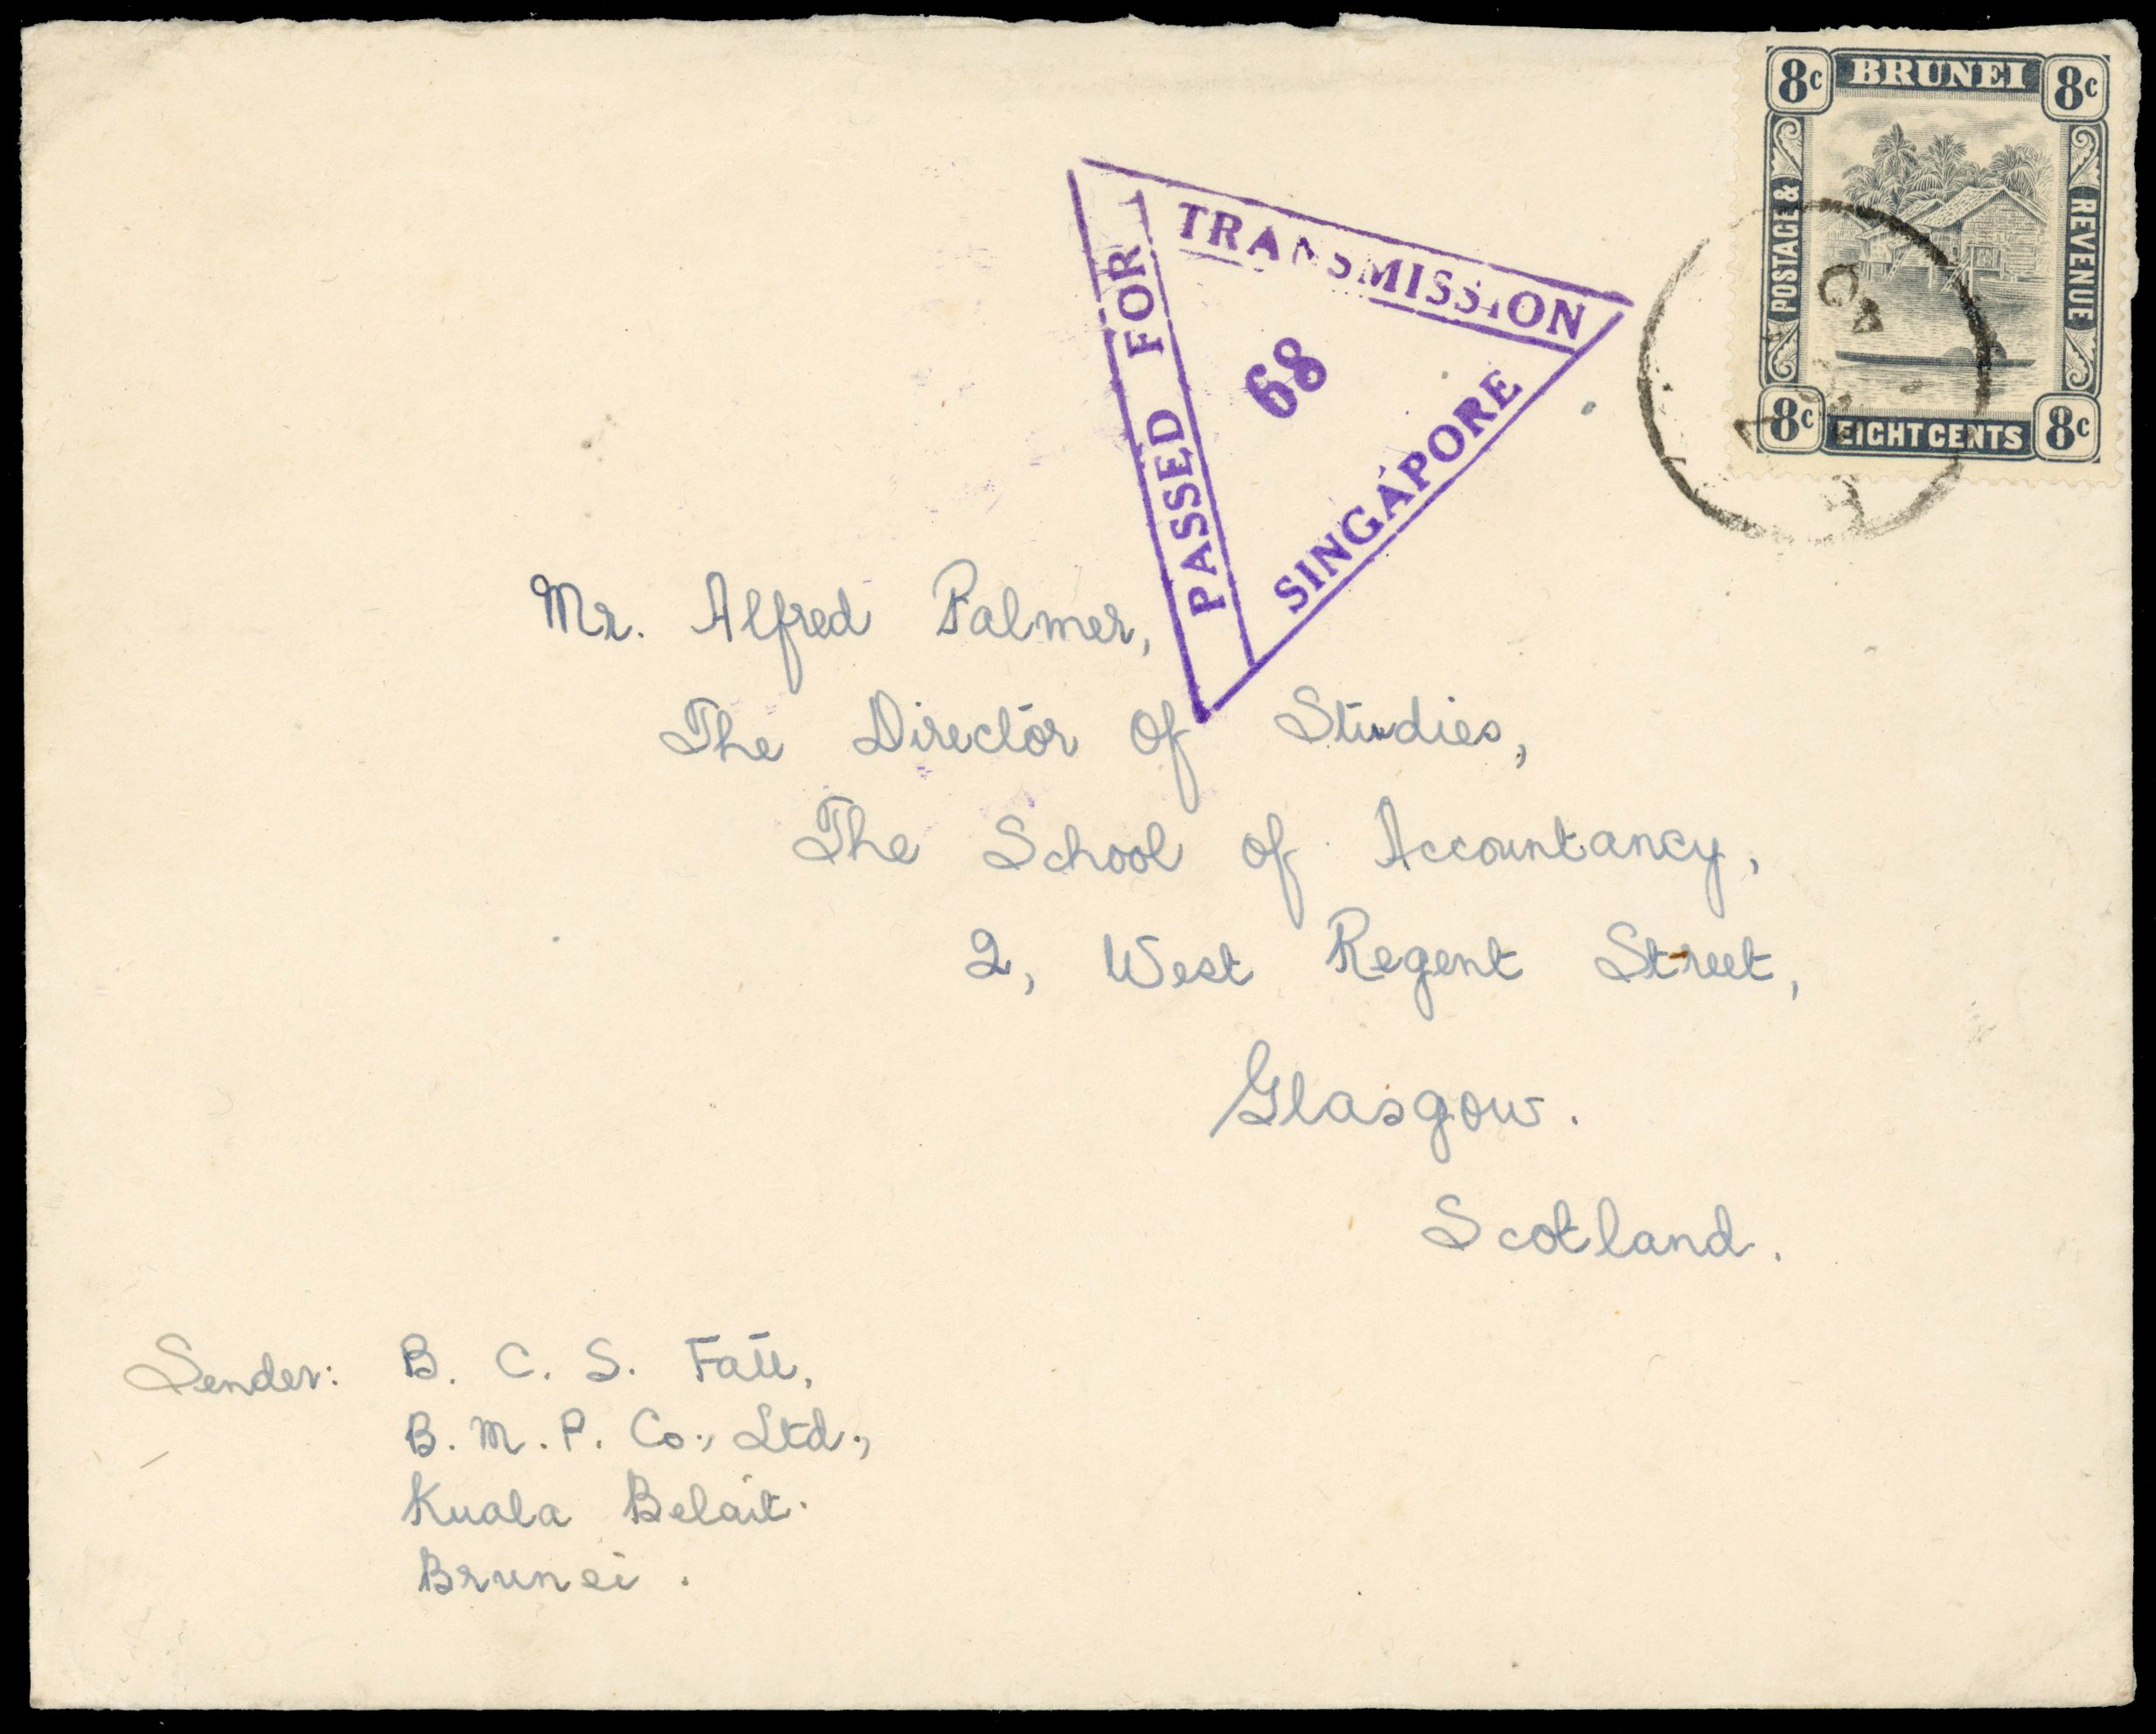 8c BRUNEI 8c
POSTAGE & REVENUE
8c EIGHT CENTS 8c
PASSED FOR
TRANSMISSION
68
SINGAPORE
Mr. Alfred Palmer,
The Director Of Studies,
The School of Accountancy,
2, West Regent Street,
Glasgow.
Scotland.
Sender: B. C. S. Fatt,
B. M. P. Co., Ltd.,
Kuala Belait.
Brunei.